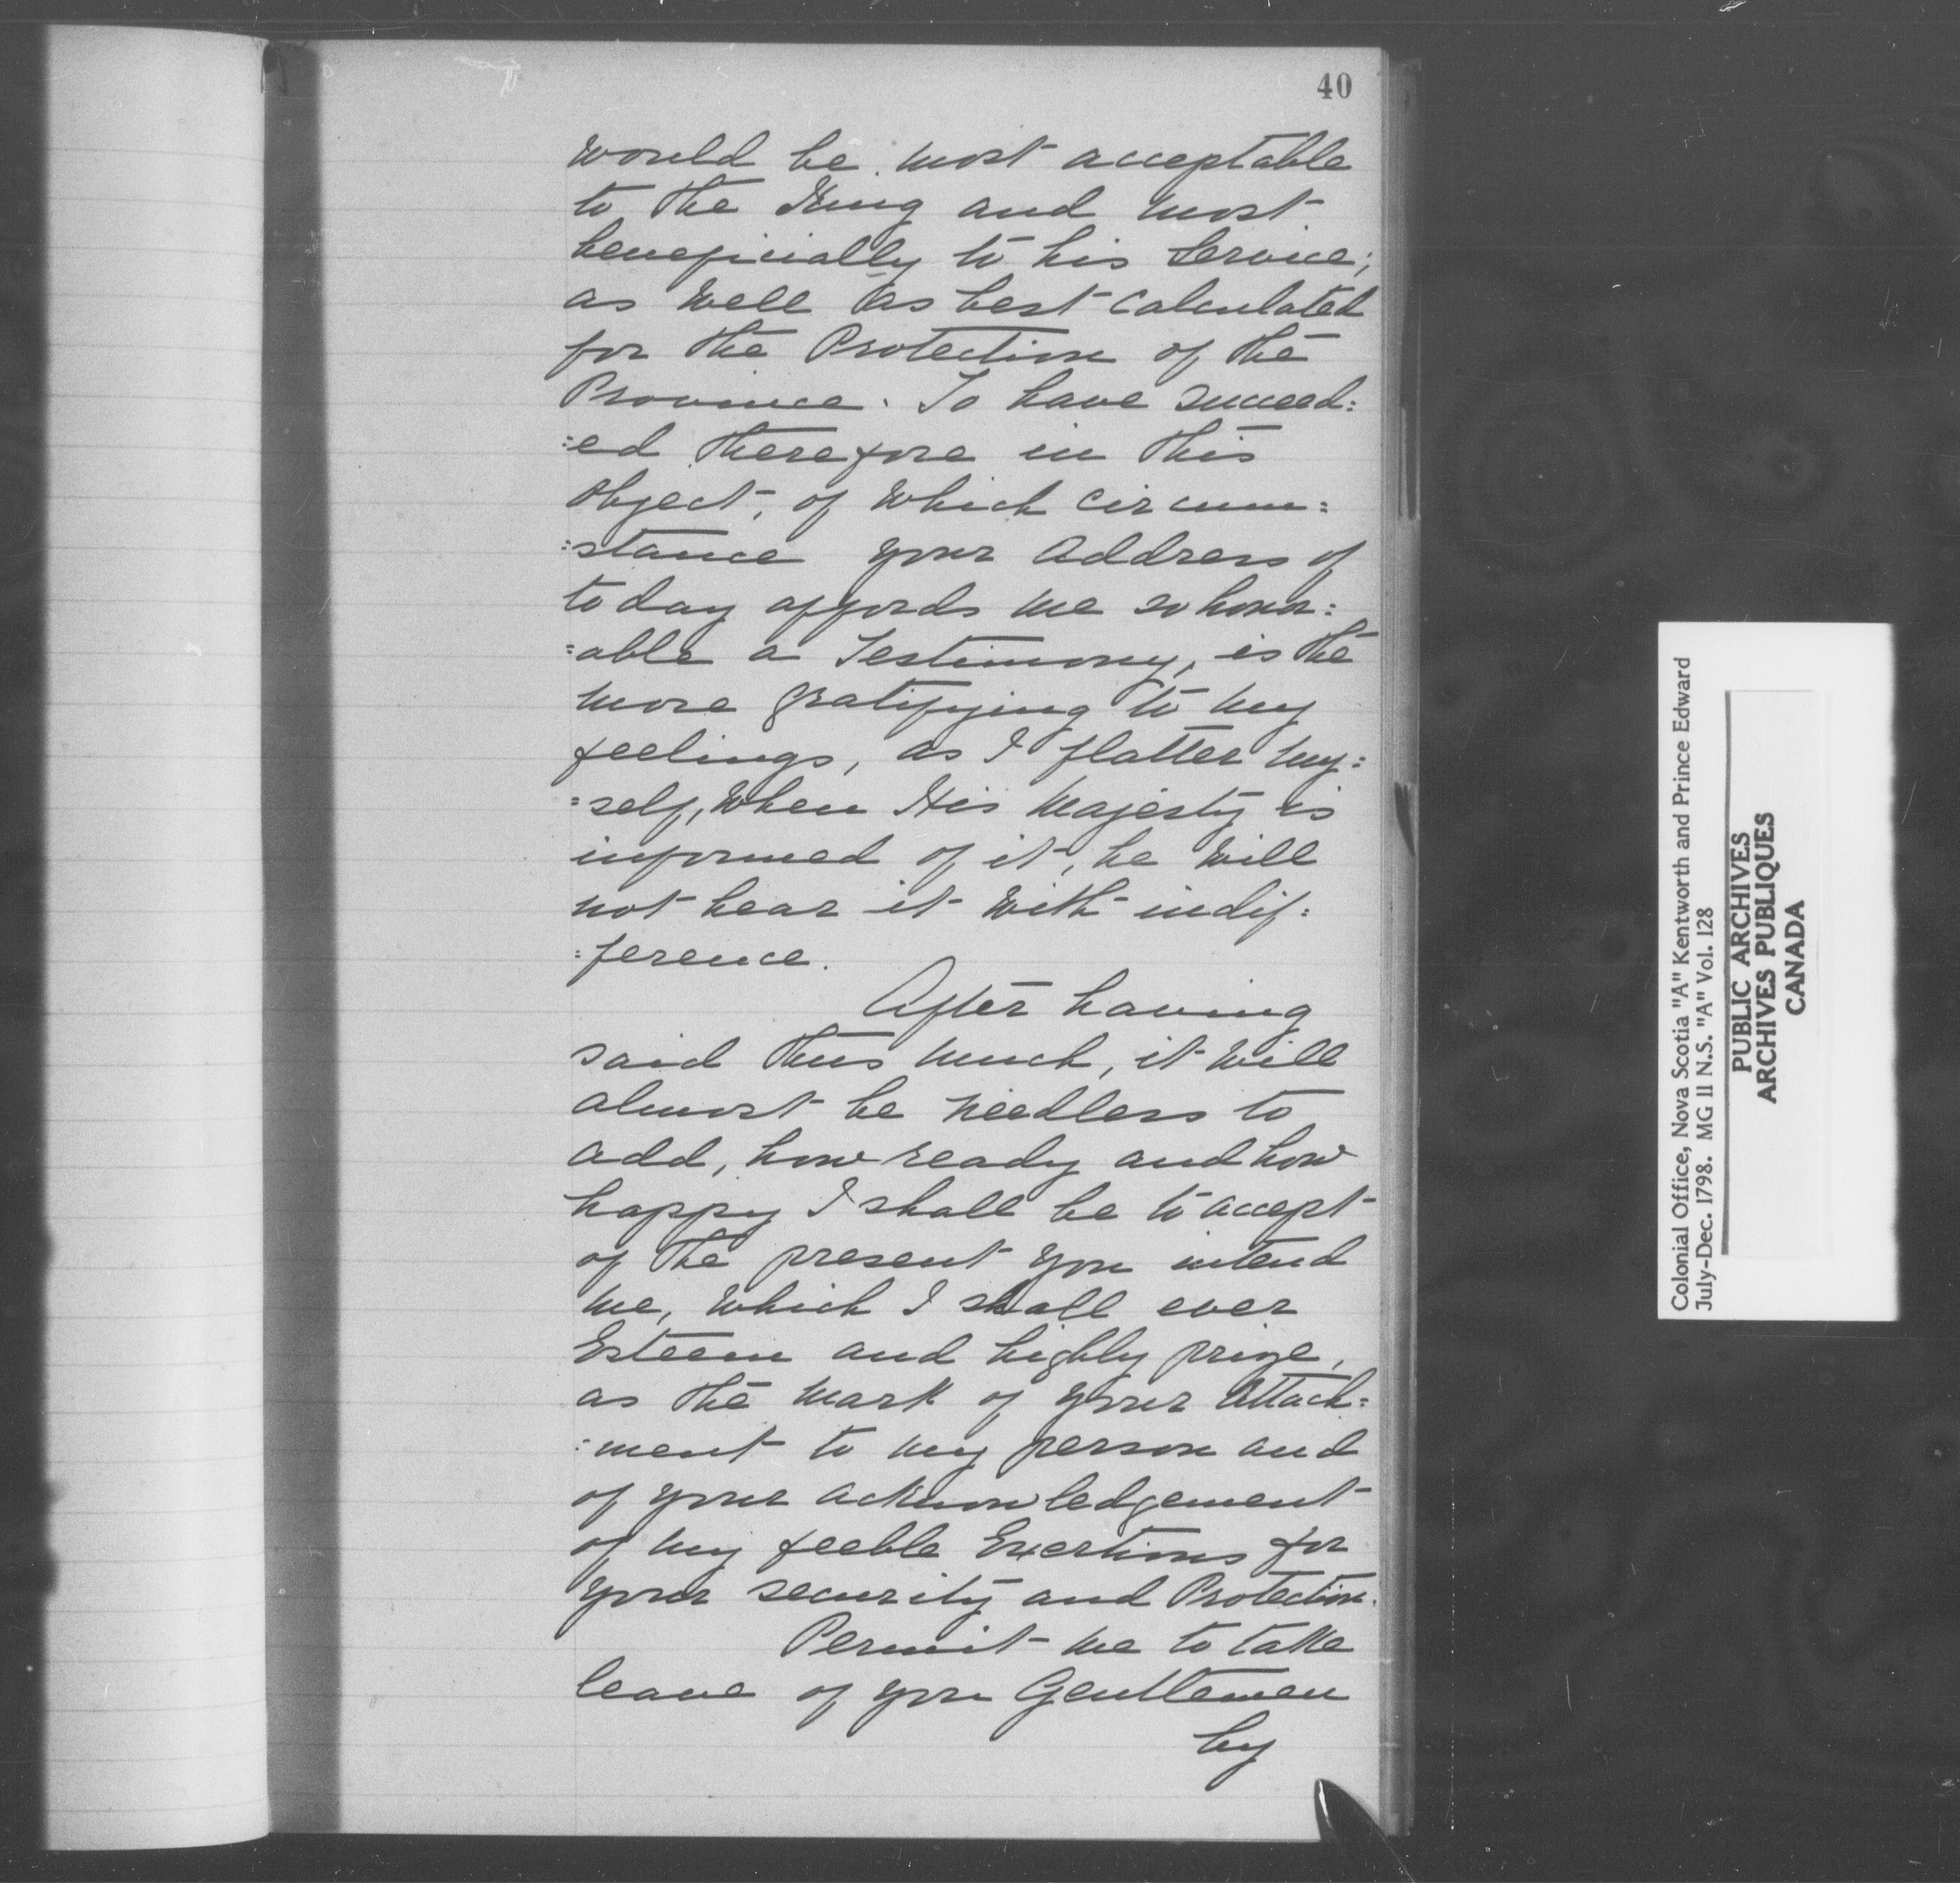 40
would be most acceptable
to the King and most
beneficially to his Service;
as well as best calculated
for the Protection of the
Province. To have succeed:
:ed therefore in this
object, of which circum:
:stance your address of
today affords me so hono:
:able a Testimony, is the
more gratifying to my
feelings, as I flatter my:
:self, when His Majesty is
informed of it, he will
not hear it with indif:
:ference.
After having
said thus much, it will
almost be needless to
add, how ready and how
happy I shall be to accept
of the present you intend
me, which I shall ever
Esteem and highly prize,
as the mark of your attach:
:ment to my person and
of your acknowledgement
of my feeble Exertions for
your security and Protection.
Permit me to take
leave of you Gentlemen
by
Colonial Office, Nova Scotia "A" Kentworth and Prince Edward
July-Dec. 1798. MG 11 N.S. "A" Vol. 128
PUBLIC ARCHIVES
ARCHIVES PUBLIQUES
CANADA